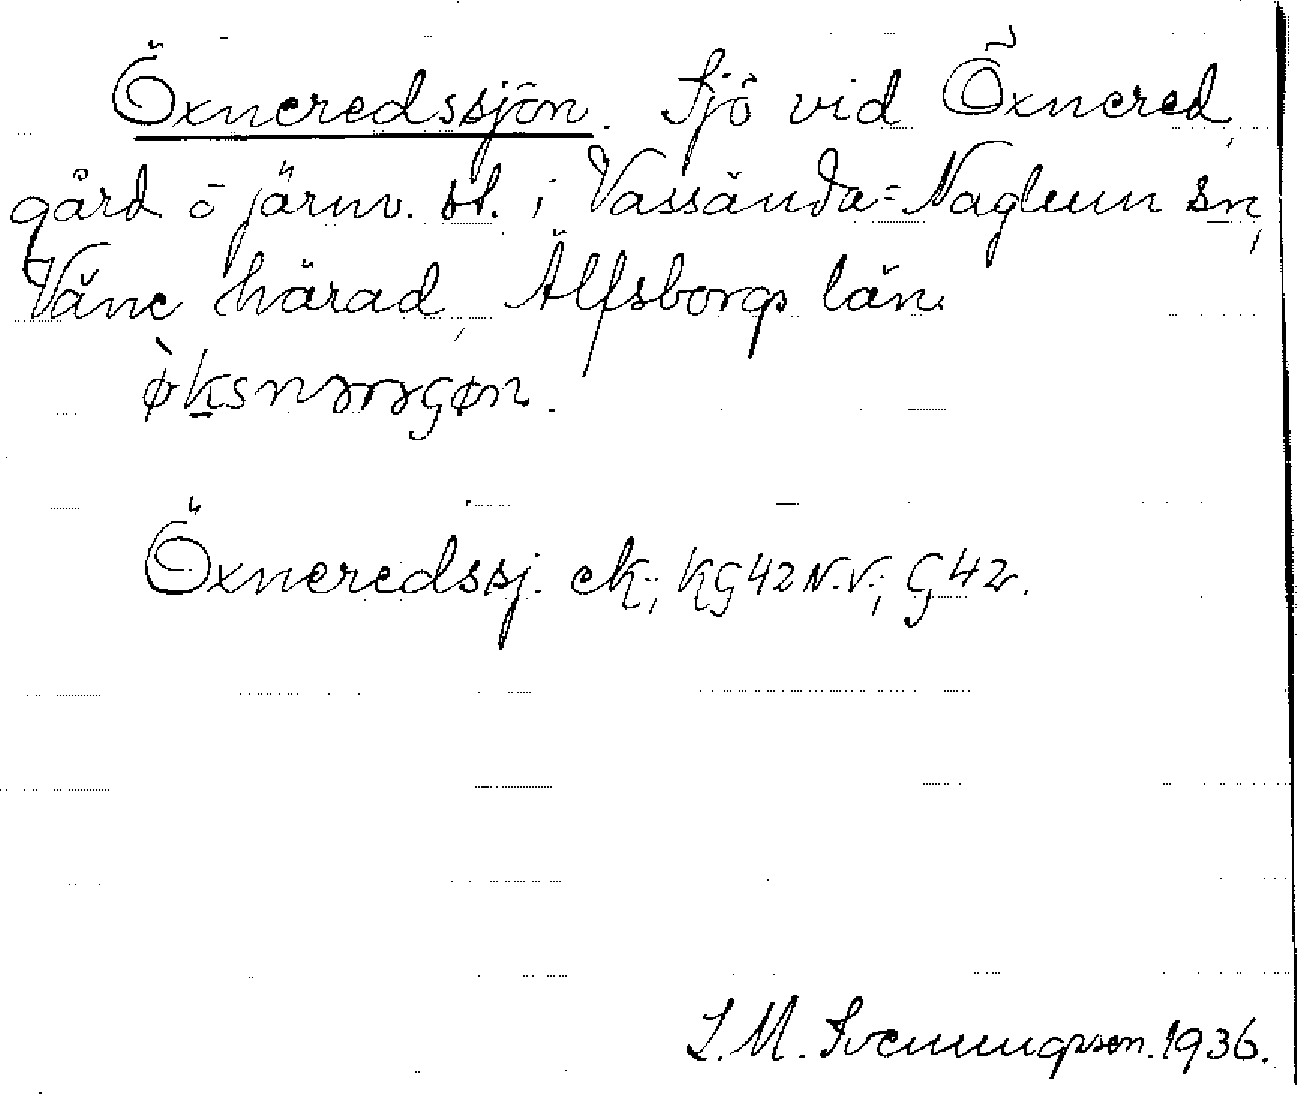 Öxneredssjön. Sjö vid Öxnered,
gård o järnv. st. i Vassända-Naglum sn,
Väne härad, Älfsborgs län.
Öxneredssj. ek.; KG42N.V; G42.
S.M. Svenningsson. 1936.